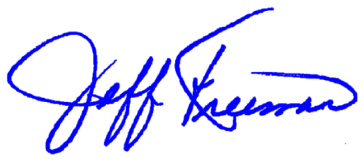 Jeff Freeman